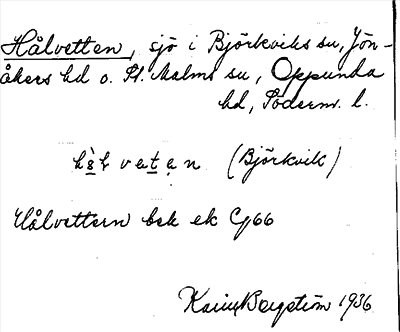 Hålvetten, sjö i Björkviks su, Jön-
åkers hd o. St. Malms su, Oppunda
hd, Söderm. l.
(Björkvik)
Hålvettern bek ek Cg66
Karin Bergström 1936